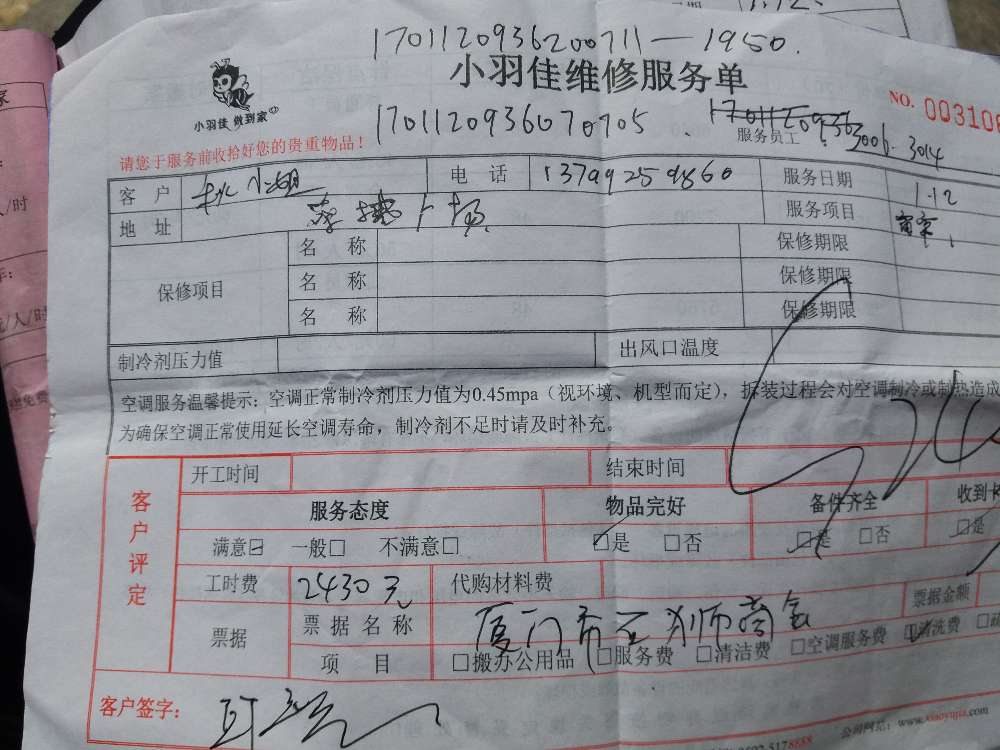 170112093620071​1—1950.
小羽佳维修服务单
小羽佳 做到家
NO. 003106
170112093607​0705.
服务员工 3006. 3014
请您于服务前收拾好您的贵重物品！
客 户 小姐 电 话 13799259860 服务日期 1.12
地 址 广场 服务项目
保修项目 名 称 保修期限
名 称 保修期限
名 称 保修期限
制冷剂压力值 出风口温度
空调服务温馨提示：空调正常制冷剂压力值为0.45mpa（视环境、机型而定），拆装过程会对空调制冷或制热造成
为确保空调正常使用延长空调寿命，制冷剂不足时请及时补充。
客户评定 开工时间 结束时间
服务态度 物品完好 备件齐全 收到卡
满意☑ 一般□ 不满意□ ☑是 □否 ☑是 □否 ☑是
工时费 2430元 代购材料费
票据 票据名称 厦门市 商会 票据金额
项 目 □搬办公用品 □服务费 □清洁费 □空调服务费 ☑清洗费
客户签字：
公司网站：www.xiaoyujia.com